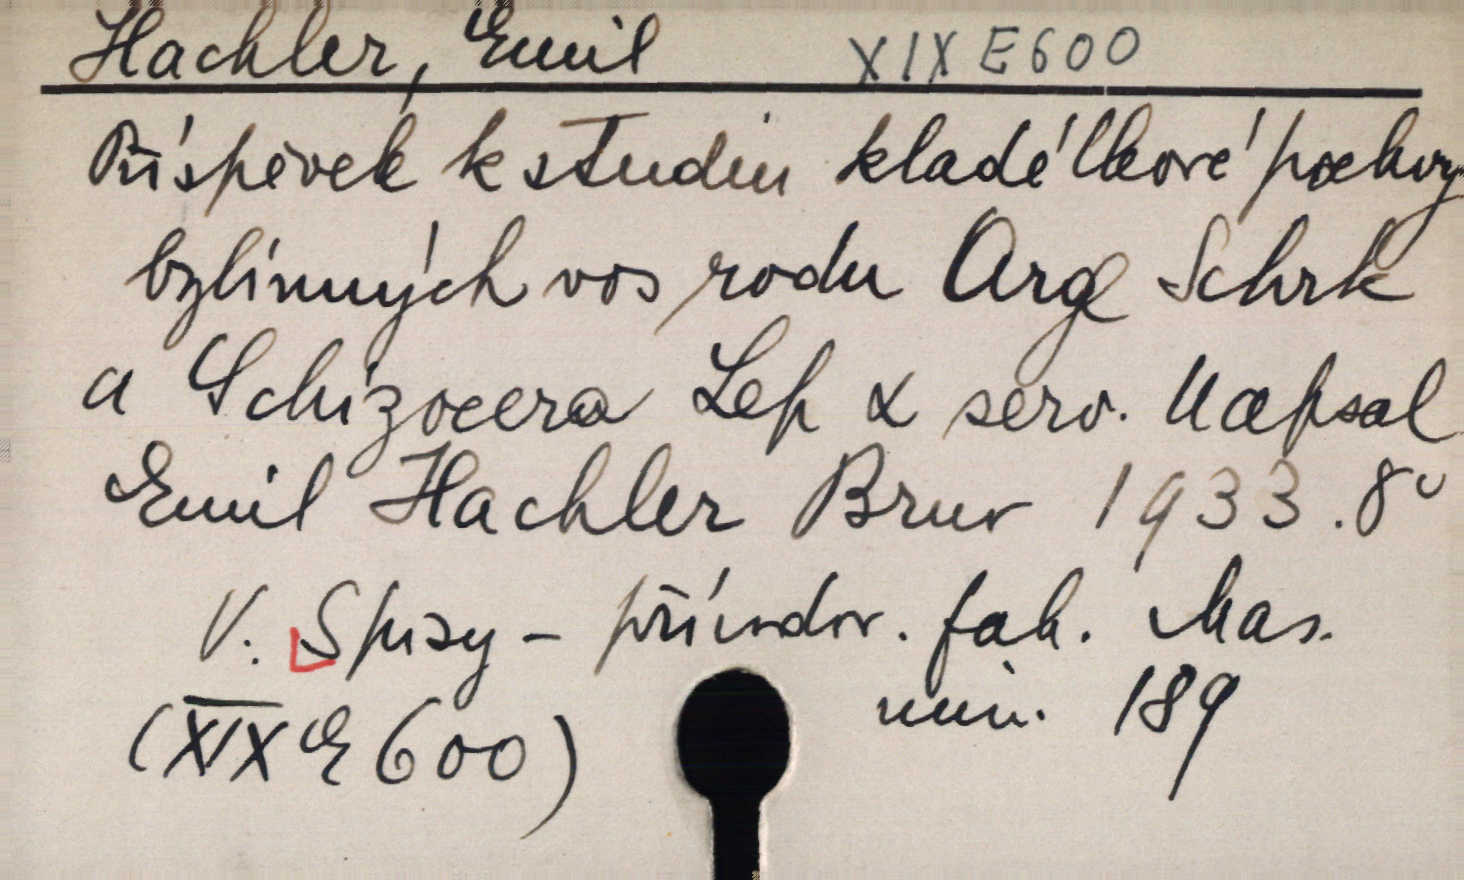 Hachler, Emil XIX E 600
Příspěvek k studiu kladélkové pochvy
bylinných vos rodu Arge Schrk
a Schizocera Lep & serv. Napsal
Emil Hachler Brno 1933. 8°
V. Spisy - přírodov. fak. Mas.
univ. 189
(XIX E 600)